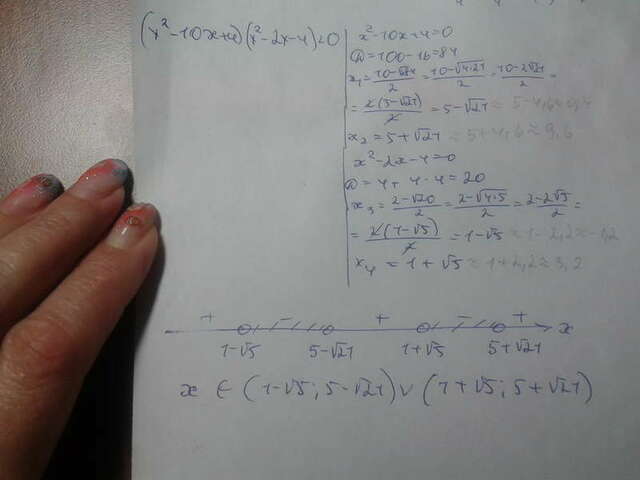 (x²-10x+4)(x²-2x-4)<0
x²-10x+4=0
D=100-16=84
x₁=(10-√84)/2=(10-√4·21)/2=(10-2√21)/2=
=2(5-√21)/2=5-√21≈5-4,6≈0,4
x₂=5+√21≈5+4,6≈9,6
x²-2x-4=0
D=4+4·4=20
x₃=(2-√20)/2=(2-√4·5)/2=(2-2√5)/2=
=2(1-√5)/2=1-√5≈1-2,2≈-1,2
x₄=1+√5≈1+2,2≈3,2
+ - + - +
x
1-√5 5-√21 1+√5 5+√21
x ∈ (1-√5; 5-√21)∨(1+√5; 5+√21)